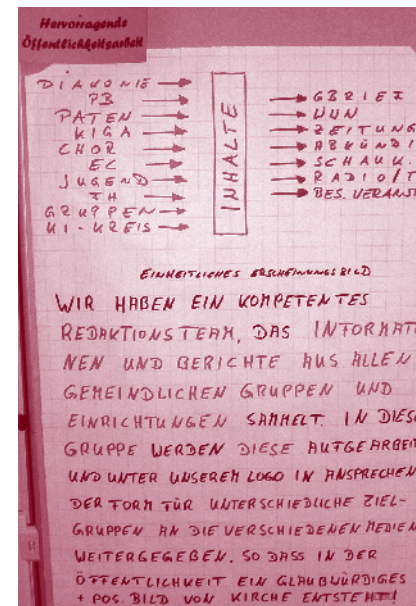 Hervorragende
Öffentlichkeitsarbeit
DIAKONIE
PB
PATEN
KIGA
CHOR
EC
JUGEND
TH
GRUPPEN
KI-KREIS
INHALTE
GBRIEF
WUN
ZEITUNG
ABKÜNDI
SCHAUK.
RADIO/T
BES. VERANST
EINHEITLICHES ERSCHEINUNGSBILD
WIR HABEN EIN KOMPETENTES
REDAKTIONSTEAM, DAS INFORMATI
NEN UND BERICHTE AUS ALLEN
GEMEINDLICHEN GRUPPEN UND
EINRICHTUNGEN SAMMELT. IN DIESE
GRUPPE WERDEN DIESE AUFGEARBEIT
UND UNTER UNSEREM LOGO IN ANSPRECHEN
DER FORM FÜR UNTERSCHIEDLICHE ZIEL-
GRUPPEN AN DIE VERSCHIEDENEN MEDIEN
WEITERGEGEBEN, SO DASS IN DER
ÖFFENTLICHKEIT EIN GLAUBWÜRDIGES
+ POS. BILD VON KIRCHE ENTSTEHT!